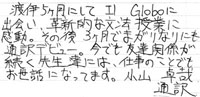 渡伊5ヶ月にして Il Globoに
出会い、革新的な文法授業に
感動。その後3ヶ月でまがりなりにも
通訳デビュー。今でも友達関係が
続く先生輩には、仕事のことでも
お世話になってます。小山 卓哉
通訳